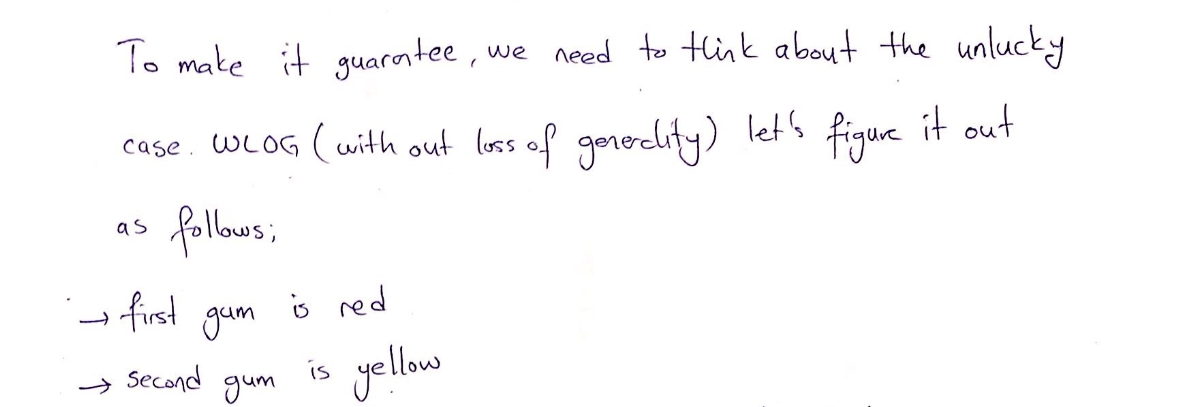 To make it guarantee, we need to think about the unlucky
case. WLOG (with out loss of generality) let's figure it out
as follows;
→ first gum is red
→ second gum is yellow